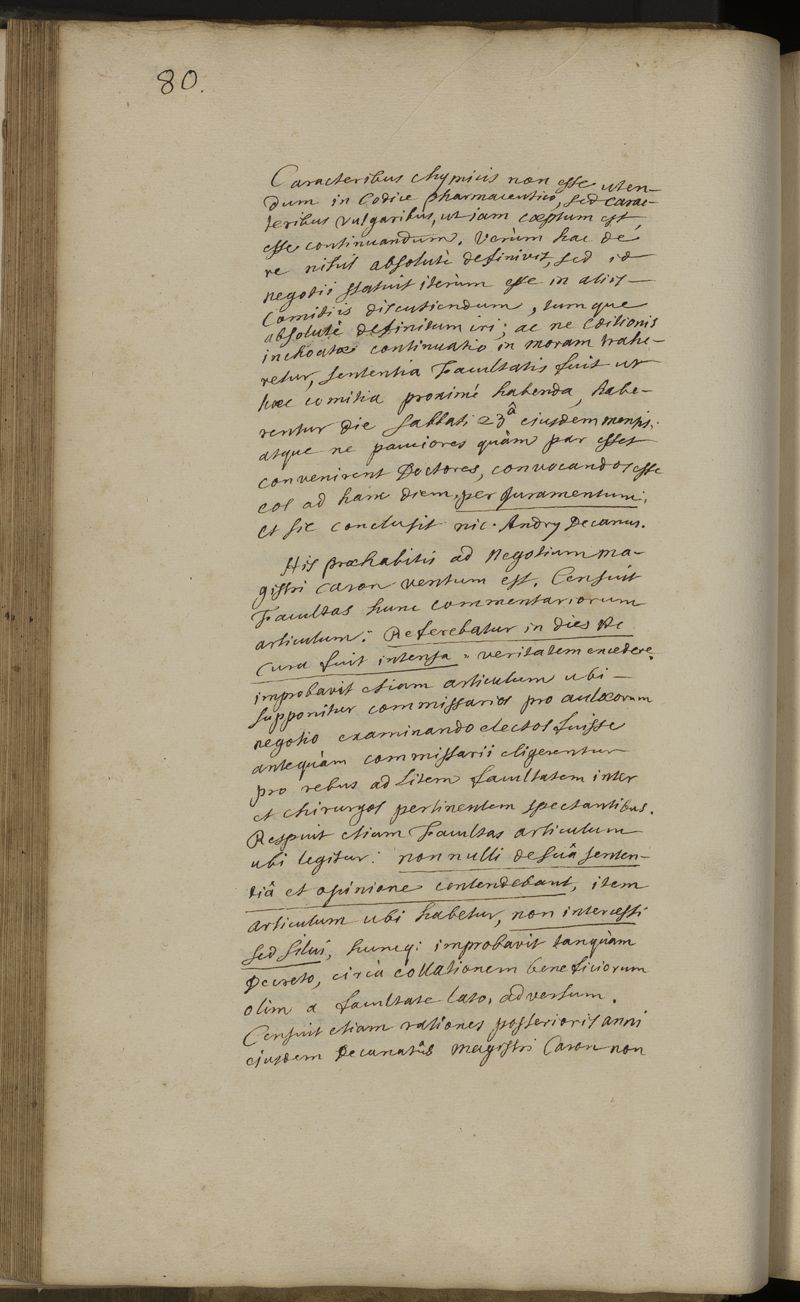 80.
Caracteribus chymicis non esse uten-
dum in Codice pharmaceutico, sed carac-
teribus vulgaribus, ut iam cœptum est,
esse continuandum. Verùm hac de
re nihil absolutè definivit, sed id
negotii statuit iterùm esse in aliis
Comitiis discutiendum, tumque
absolutè definitum iri; ac ne Editionis
inchoatæ continuatio in moram trahe-
retur, sententia Facultatis fuit ut
hæc comitia proximè habenda, habe-
rentur die sabbati 23â ejusdem mensis.
atque ne pauciores quàm par esset
convenirent Doctores, convocandos esse
eos ad hanc diem, per Juramentum;
et sic conclusit nic. Andry Decanus.
His præhabitis ad Negotium ma-
gistri Caron ventum est. Censuit
Facultas hunc commentariorum
articulum: Referebatur in dies Ac
Cura fuit intensa, veritatem excedere,
improbavit etiam articulum ubi
supponitur commissarios pro aulæorum
negotio examinando electos fuisse
antequàm commissarii eligerentur
pro rebus ad Litem facultatem inter
et chirurgos pertinentem spectantibus.
Respuit etiam Facultas articulum
ubi legitur: nonnulli de suâ senten-
tiâ et opinione contendebant, item
articulum ubi habetur, non intercessi
sed silui, huncq; improbavit tanquàm
Decreto, circà collationem beneficiorum
olim a facultate lato, adversum.
Censuit etiam rationes posterioris anni
ejusdem Decanatûs magistri Caron non